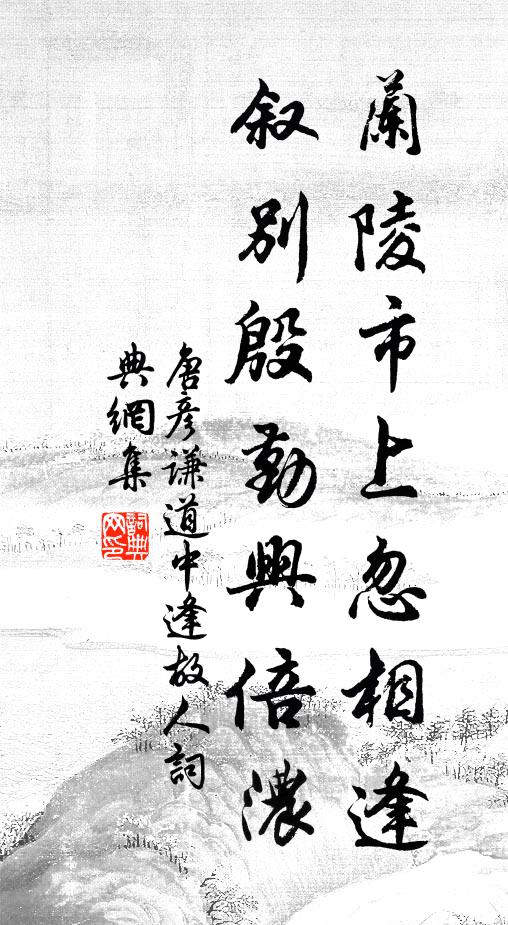 蘭陵市上忽相逢
叙別殷勤興倍濃
唐彥謙道中逢故人詞
典網集
詞典
网印